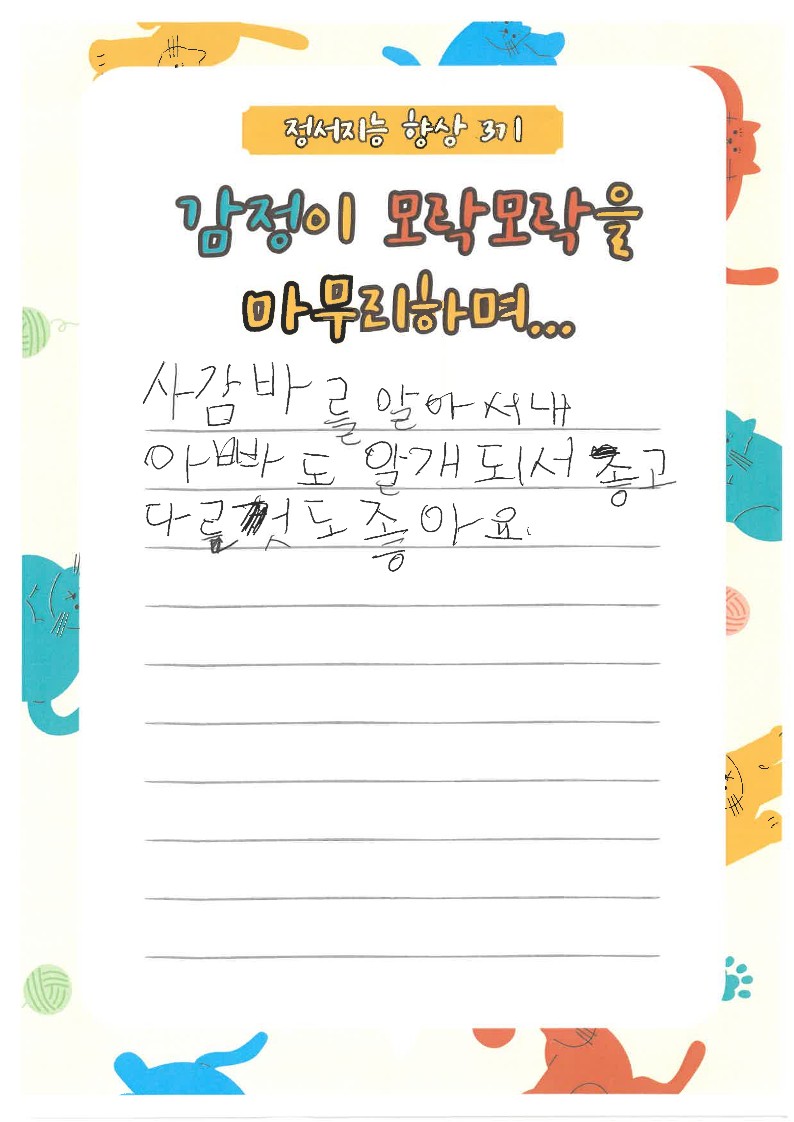 정서지능 향상 3기
감정이 모락모락을
마무리하며...
사감바를 알아서내
아빠도 알개되서 좋고
다른것도좋아요.